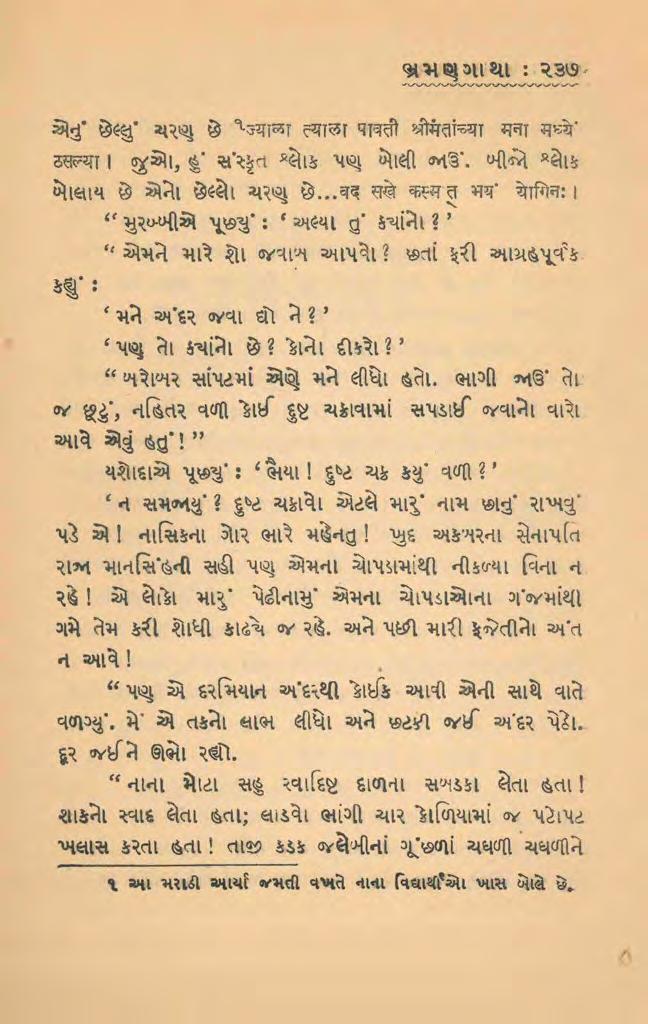 ભ્રમણગાથા : ૨૩૭
એનું છેલ્લું ચરણ છે ૧ज्याला त्याला पावती श्रीमंतांच्या मना मध्यें
ठसल्या । જુઓ, હું સંસ્કૃત શ્લોક પણ બોલી જાઉં. બીજો શ્લોક
બોલાય છે એનો છેલ્લો ચરણ છે...वद सखे कस्मत् भयं योगिनः ।
“ મુરબ્બીએ પૂછ્યું : ‘ અલ્યા તું ક્યાંનો ? ’
“ એમને મારે શો જવાબ આપવો ? છતાં ફરી આગ્રહપૂર્વક
કહ્યું :
‘ મને અંદર જવા દ્યો ને ? ’
‘ પણ તો ક્યાંનો છે ? કોનો દીકરો ? ’
“ બરોબર સાંપટમાં એણે મને લીધો હતો. ભાગી જાઉં તો
જ છૂટું, નહિતર વળી કોઈ દુષ્ટ ચક્રાવામાં સપડાઈ જવાનો વારો
આવે એવું હતું ! ”
યશોદાએ પૂછ્યું : ‘ ભૈયા ! દુષ્ટ ચક્ર કયું વળી ? ’
‘ ન સમજાયું ? દુષ્ટ ચક્રાવો એટલે મારું નામ છાનું રાખવું
પડે એ ! નાસિકના ગોર ભારે મહેનતુ ! ખુદ અકબરના સેનાપતિ
રાજા માનસિંહની સહી પણ એમના ચોપડામાંથી નીકળ્યા વિના ન
રહે ! એ લોકો મારું પેઢીનામું એમના ચોપડાઓના ગંજમાંથી
ગમે તેમ કરી શોધી કાઢયે જ રહે. અને પછી મારી ફજેતીનો અંત
ન આવે !
“ પણ એ દરમિયાન અંદરથી કોઈક આવી એની સાથે વાતે
વળગ્યું. મેં એ તકનો લાભ લીધો અને છટકી જઈ અંદર પેઠો.
દૂર જઈને ઊભો રહ્યો.
“ નાના મોટા સહુ સ્વાદિષ્ટ દાળના સબડકા લેતા હતા !
શાકનો સ્વાદ લેતા હતા; લાડવો ભાંગી ચાર કોળિયામાં જ પટોપટ
ખલાસ કરતા હતા ! તાજી કડક જલેબીનાં ગૂંછળાં ચઘળી ચઘળીને
૧ આ મરાઠી આર્યા જમતી વખતે નાના વિદ્યાર્થીઓ ખાસ બોલે છે.